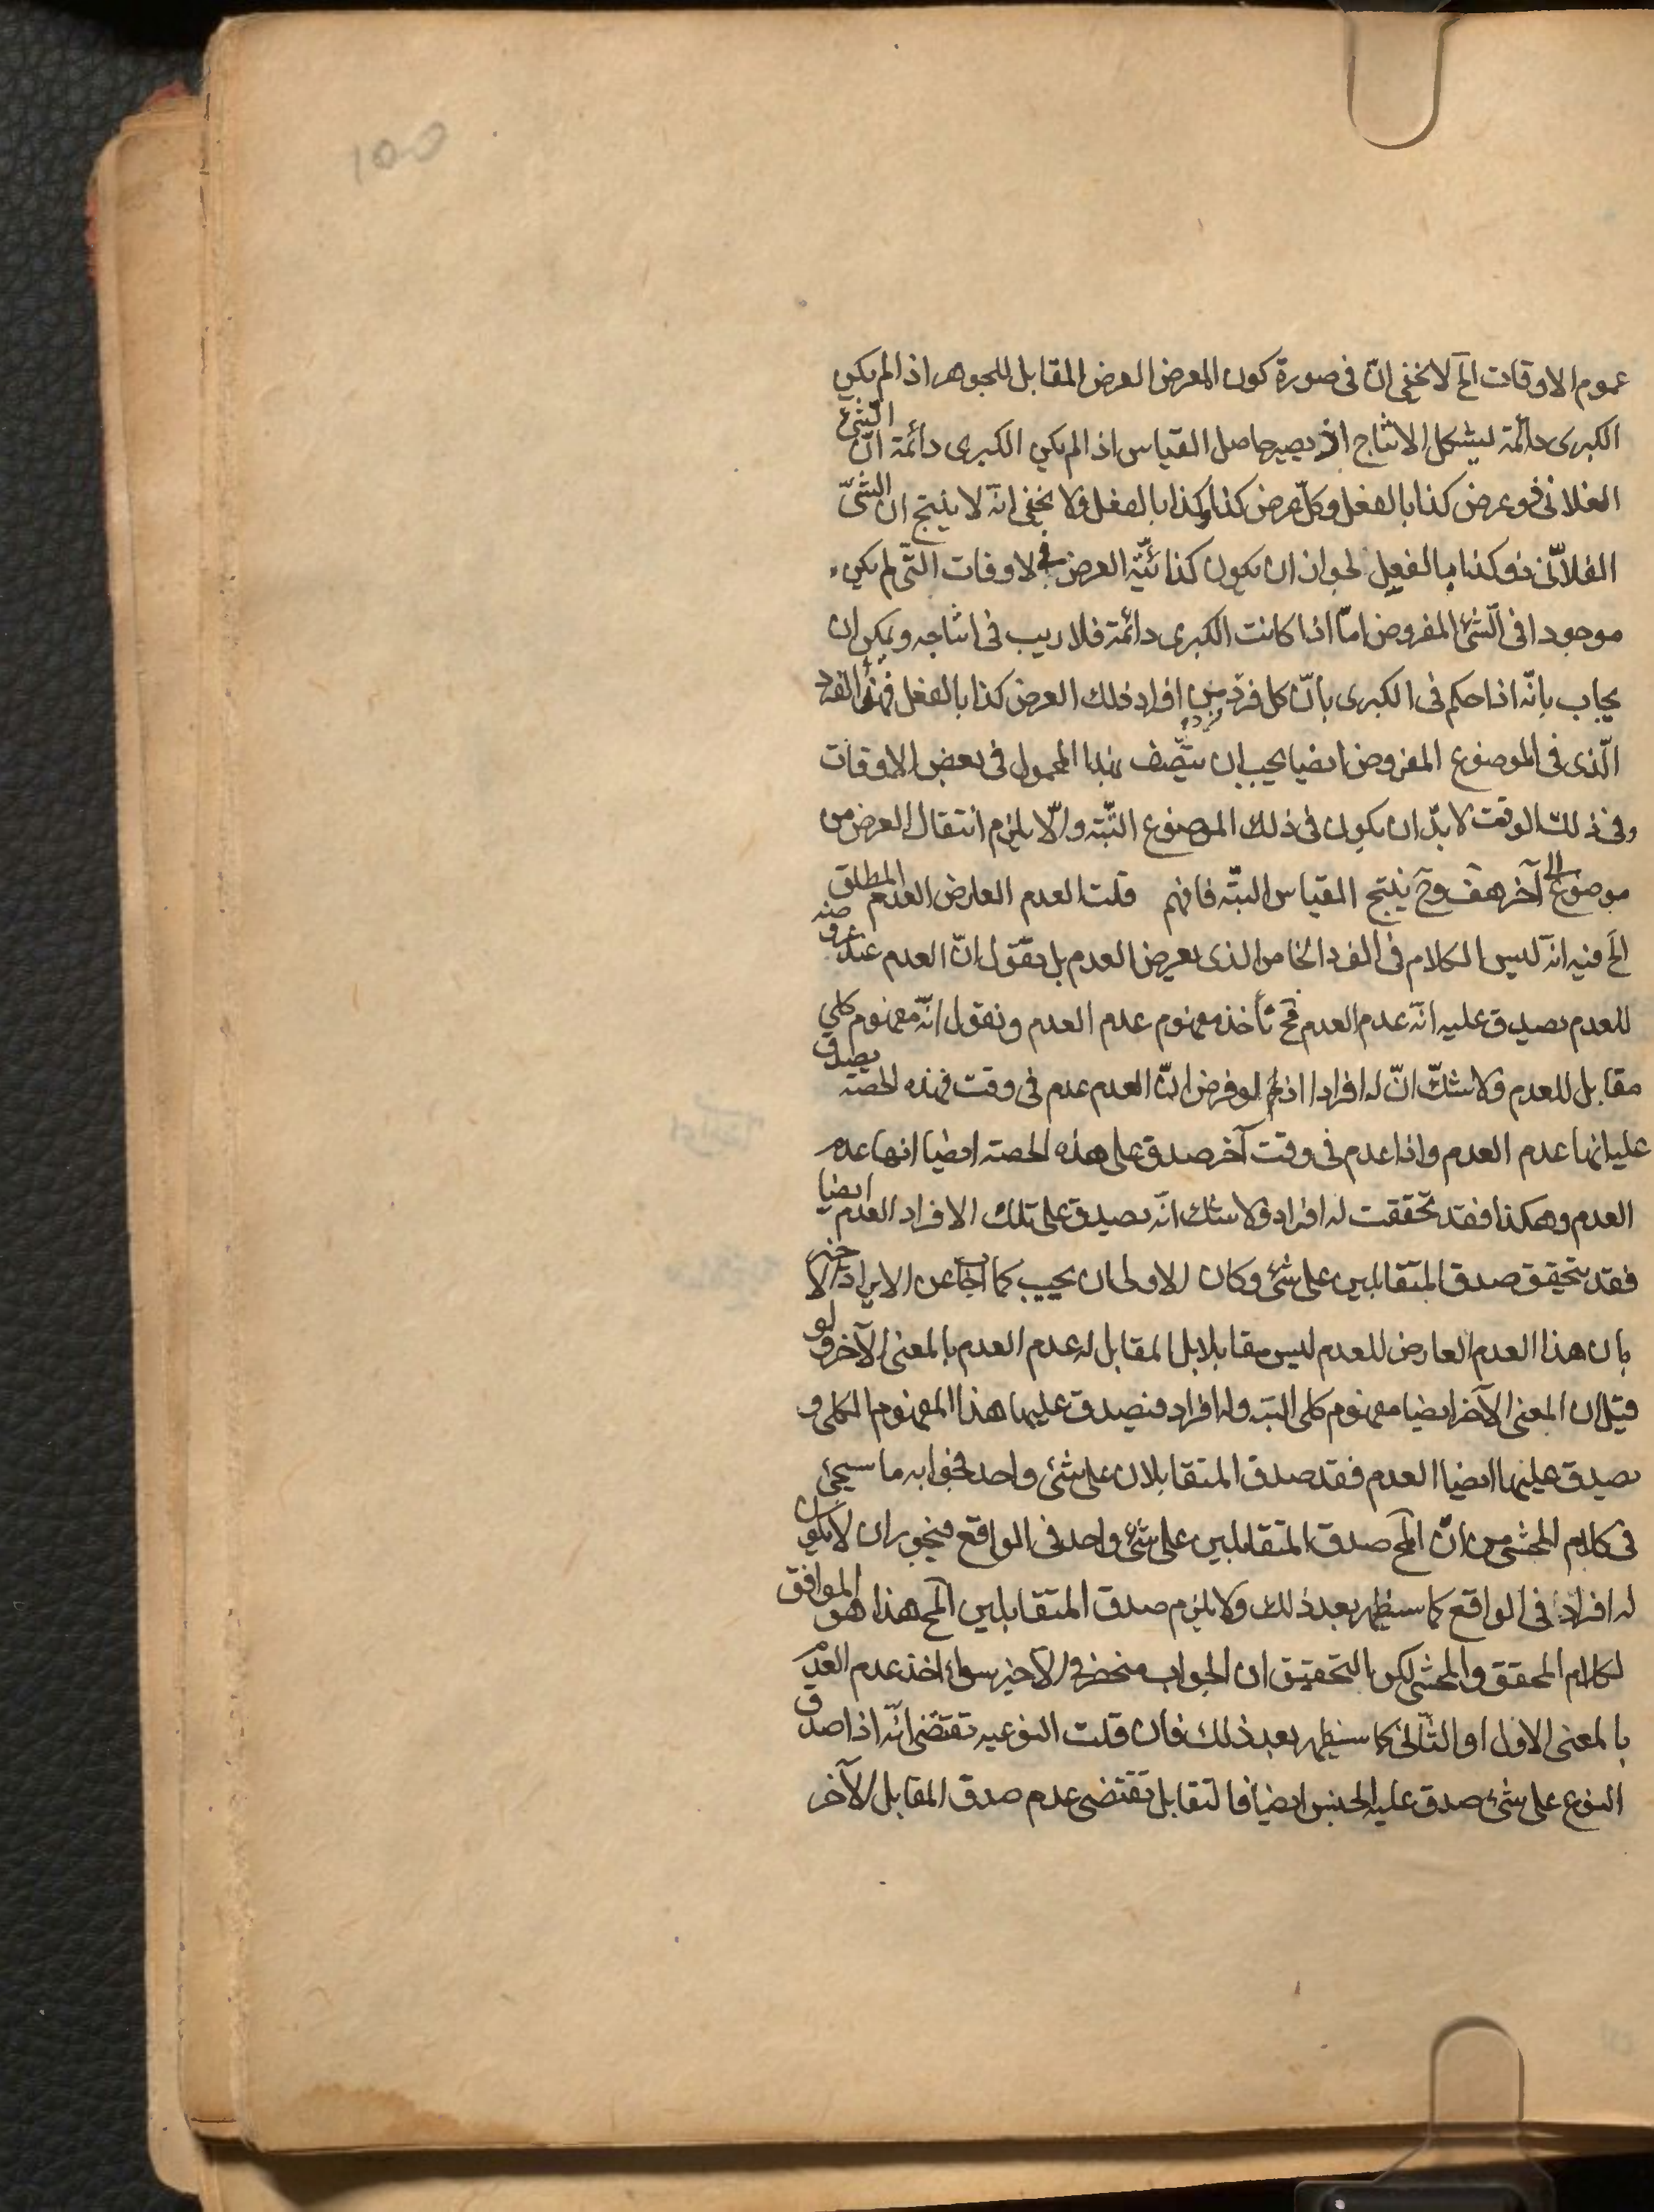 عموم الاوقات الخ لا يخفى انّ فى صورة كون المعرض العرض المقابل للجوهر اذا لم يكن
الكبرى دائمة ليشكل الانتاج اذ يصير حاصل القياس اذا لم يكن الكبرى دائمة انّ الشئ
الفلانى ذو عرض كذا بالفعل وكلّ عرض كذا كذا بالفعل ولا يخفى انّه لا ينتج ان الشئ
الفلانّى ذو كذا بالفعل لجواز ان يكون كذائيّة العرض فى لاوقات التّى لم يكن
موجودا فى الشئ المفروض امّا اذا كانت الكبرى دائمة فلا ريب فى انتاجه ويمكن ان
يجاب بانّه اذا حكم فى الكبرى بانّ كل فرد من افراد ذلك العرض كذا بالفعل فهذا الفرد
الّذى فى الموضوع المفروض ايضا يجب ان يتّصف بهذا المحمول فى بعض الاوقات
وفى ذلك الوقت لا بدّ ان يكون فى ذلك الموضوع البّتة والّا يلزم انتقال العرض من
موضوع الى آخر هف وح ينتج القياس البتّه فافهم قلت العدم العارض العدم المطلق
الخ فيه انّه ليس الكلام فى الفرد الخاص الذى يعرض العدم بل نقول انّ العدم عند عروضه
للعدم يصدق عليه انّه عدم العدم فح نأخذ مفهوم عدم العدم ونقول انّه مفهوم كلي
مقابل للعدم ولا شكّ انّ له افرادا اذ لو فرض انّ العدم عدم فى وقت فهذه الحصّة يصدق
عليها انها عدم العدم واذا عدم فى وقت آخر صدق على هذه الحصة ايضا انها عدم
العدم وهكذا فقد تحققت له افراد ولا شك انّه يصدق على تلك الافراد العدم ايضا
فقد يتحقق صدق المتقابلين على شئ وكان الاولى ان يجيب كما اجاب عن الايراد الاخير
بان هذا العدم العارض للعدم ليس مقابلا بل المقابل له عدم العدم بالمعنى الآخر ولو
قيل ان المعنى الآخر ايضا مفهوم كلى البته وله افراد فيصدق عليها هذا المفهوم الكلى و
يصدق عليها ايضا العدم فقد صدق المتقابلان على شئ واحد فجوابه ما سيجئ
فى كلام المحشى من انّ المح صدق المتقابلين على شئ واحد فى الواقع فيجوز ان لا يكون
له افراد فى الواقع كما سيظهر بعد ذلك ولا يلزم صدق المتقابلين المح هذا هو الموافق
لكلام المحقق والمحشى لكن بالتحقيق ان الجواب منحصر فى الاخير سواء اخذ عدم العدم
بالمعنى الاول او الثّانى كما سيظهر بعد ذلك فان قلت النوعيه تقتضى انّه اذا صدق
النوع على شئ صدق عليه الجنس ايضا فالتقابل تقتضى عدم صدق المقابل الآخر